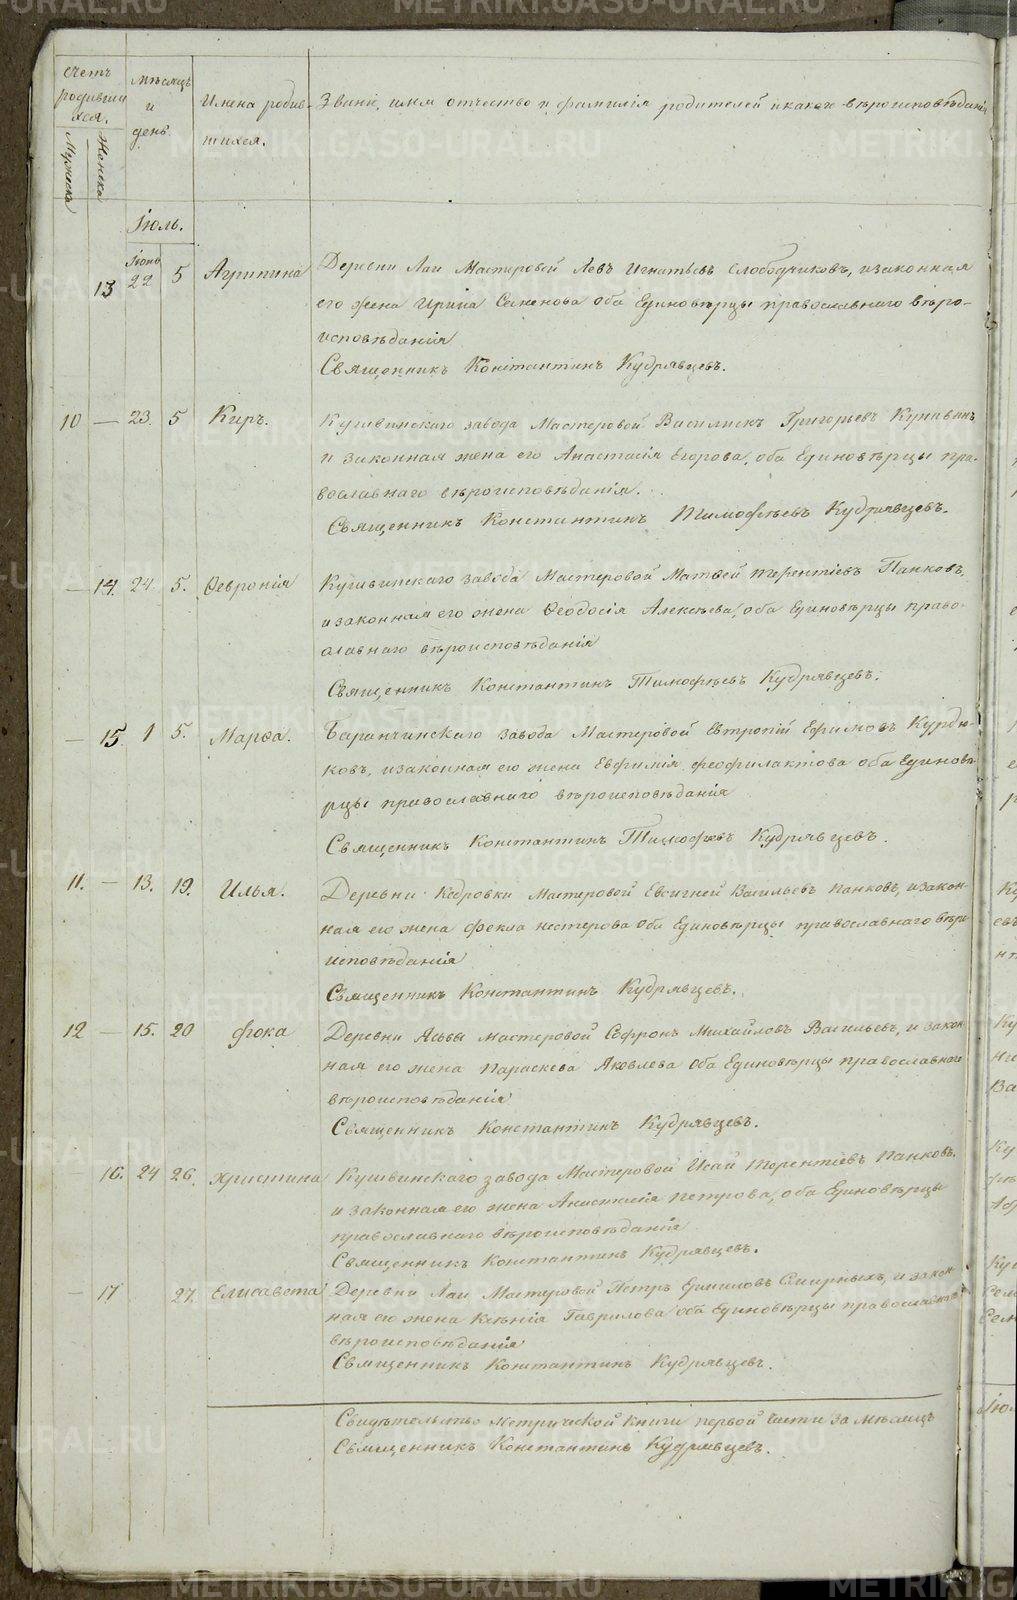 счетъ родивши хся.
Мужеска
Женска
мѣсяцъ и день.
Имена родив- шихся.
Званіе, имя отчество и фамилія родителей и какого вѣроисповѣданія
Іюль.
Іюнь
13 22 5 Агрипина Деревни Лаи Мастеровой Левъ Игнатьевъ Слободчиковъ, и законная
его жена Ирина Семенова оба Единовѣрцы православнаго вѣро-
исповѣданія
Священникъ Константинъ Кудрявцевъ.
10 — 23. 5 Киръ. Кушвинскаго завода Мастеровой Василискъ Григорьевъ Кунавинъ
и законная жена его Анастасія Егорова, оба Единовѣрцы пра-
вославнаго вѣроисповѣданія.
Священникъ Константинъ Тимофѣевъ Кудрявцевъ.
— 14. 24. 5. Ѳевронія Кушвинскаго завода Мастеровой Матвей Терентіевъ Панковъ,
и законная его жена Ѳеодосія Алексѣева, оба Единовѣрцы право-
славнаго вѣроисповѣданія
Священникъ Константинъ Тимофѣевъ Кудрявцевъ.
— 15. 1 5. Марѳа. Баранчинскаго завода Мастеровой Евтропій Ефимовъ Курдю-
ковъ, и законная его жена Евфимія Феофилактова оба Единовѣ-
рцы православнаго вѣроисповѣданія
Священникъ Константинъ Тимофѣевъ Кудрявцевъ.
11. — 13. 19. Илья. Деревни Кедровки Мастеровой Евсигней Васильевъ Панковъ, и закон-
ная его жена Фекла Нестерова оба Единовѣрцы православнаго вѣро-
исповѣданія
Священникъ Константинъ Кудрявцевъ.
12 — 15. 20 Фока Деревни Асьвы мастеровой Софронъ Михайловъ Васильевъ, и закон-
ная его жена Параскева Яковлева оба Единовѣрцы православнаго
вѣроисповѣданія
Священникъ Константинъ Кудрявцевъ.
16. 24 26. Христина Кушвинскаго завода Мастеровой Исай Терентіевъ Панковъ.
и законная его жена Анастасія Петрова, оба Единовѣрцы
православнаго вѣроисповѣданія
Священникъ Константинъ Кудрявцевъ.
— 17 27. Елисавета Деревни Лаи Мастеровой Петръ Ермиловъ Смирныхъ, и закон
ная его жена Ксенія Гаврилова оба Единовѣрцы православнаго
вѣроисповѣданія
Священникъ Константинъ Кудрявцевъ.
Свидѣтельство Метрической книги первой части за мѣсяцъ
Священникъ Константинъ Кудрявцевъ.
METRIKI.GASO-URAL.RU